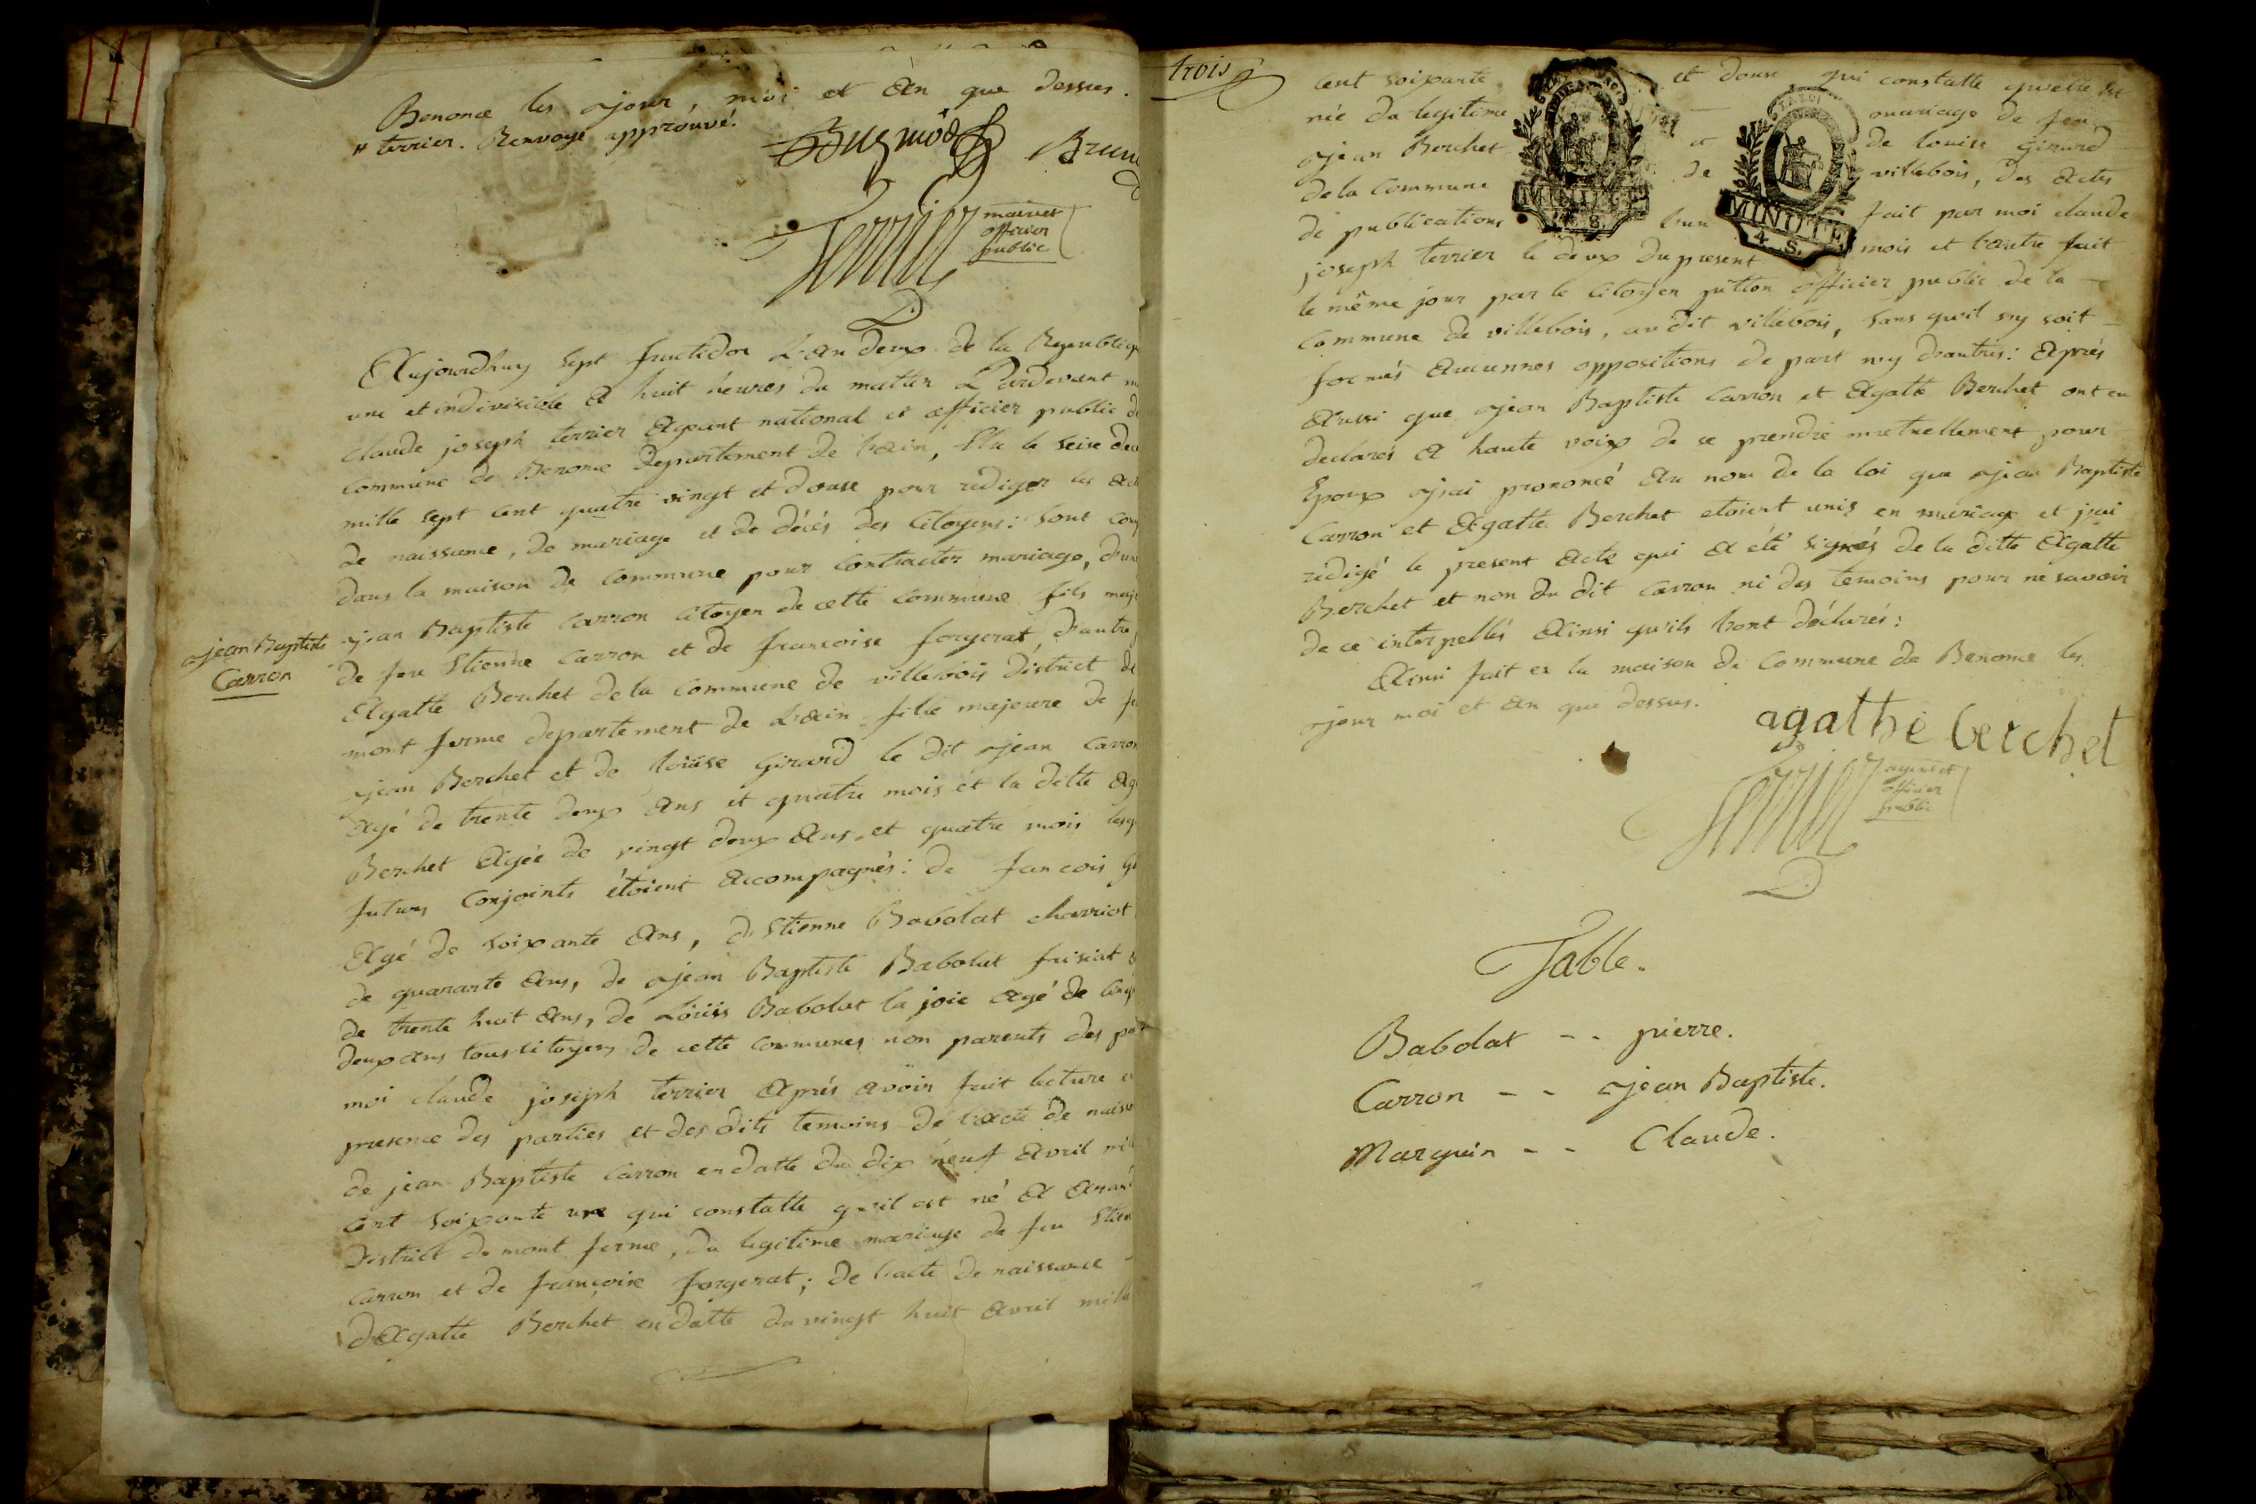 Benonce les ajour, mois et An que dessus.
# terrier. Renvoye approuvé.
Dugmôd Brun
terrier maires officier public
Aujourdhuy Sept fructidor L'an deux de la Republiq
une et indivisible A huit heures du mattin Pardevant m
claude joseph terrier Agent national et officier public d
commune de Benonce departement de L'ain, Elu le Seise dec
mille sept cent quatre vingt et douse pour rediger les Act
de naissance, de mariage et de décés des Citoyens: Sont com
dans la maison de commune pour Contracter mariage, d'une
jean Baptiste
Carron
ajean Baptiste Carron Citoyen de cette Commune fils maje
de feu Etienne Carron et de francoise forgerat, d'autre
Agatte Berchet de la commune de villebois District de
mont ferme departement de L'ain fille majeure de f
ajean Berchet et de loüise Girard le dit ajean Carron
Agé de trente deux Ans et quatre mois et la ditte Ag
Berchet Agée de vingt deux Ans et quatre mois lesq
futurs Conjoints étoient Accompagnés: de fancois G
Agé de Soixante Ans, d'Etienne Babolat charriot
de quarante Ans, de ajean Baptiste Babolat frisiat
de trente huit Ans, de Loüis Babolat la joie Agé de Cinq
deux ans tous Citoyens de cette communes non parents des pa
moi claude joseph terrier Aprés avoir fait lecture e
presence des parties et des dits temoins de L'acte de naiss
de jean Baptiste Carron en datte du dix neuf Avril mil
Cent Soixante une qui constatte qu'il est né A
District de mont ferme, du legitime mariage de feu Etien
Carron et de françoise forgerat; de L'acte de naissance
d'Agatte Berchet en datte du vingt huit Avril mille
trois
Cent soixante et douse qui constatte qu'elle est
née du legitime mariage de feu
ajean Berchet et de louise Girard
de la Commune de villebois, des Actes
de publications l'un fait par moi claude
joseph terrier le deux du present mois et l'autre fait
le même jour par le Citoyen officier public de la
commune de villebois, au dit villebois, Sans qu'il ny soit
formés Aucunnes oppositions de part ny d'autres: Aprés
Aussi que ajean Baptiste Carron et Agatte Berchet ont eu
declarés A haute voix de se prendre mutuellement pour
Epoux ajai prononcé Au nom de la loi que ajean Baptiste
Carron et Agatte Berchet etoient unis en mariage et j'ai
redigé le present Acte qui A été signés de la ditte Agatte
Berchet et non du dit Carron ni des temoins pour ne savoir
de ce interpellés Ainsi qu'ils l'ont déclarés:
Ainsi fait en la maison de Commune de Benonce les
ajour moi et An que dessus.
agathe berchet
terrier agent et officier public
Table.
Babolat - - pierre.
Carron - - ajean Baptiste.
Marguin - - Claude.
MINUTE
4. S.
MINUTE
4. S.